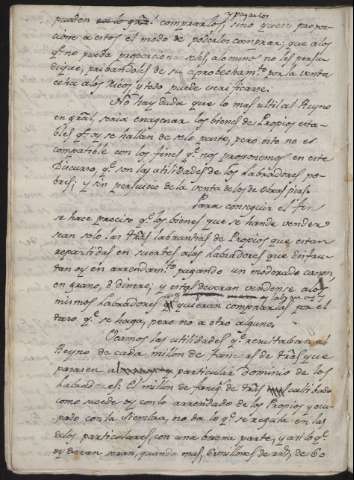 pueden en lo gral comprarlos, sino quien propor
cione a estos el modo de poderlos comprar; que a los
qe no pueda proporcionarselos, alomenos no les perju
dique, pribandoles de su aprobechamto por la venta
echa a los Ricos, y todo puede verificarse.
No hay duda que lo mas util al Reyno
en gral, seria enagenar los bienes de Propios esta
bles qe oy se hallan de sola parte, pero esto no es
compatible con los fines qe nos proponemos en este
Discurso, qe son las utilidades de los labradores po
bres; y sin perjuicio de la venta de los de Obras pias.
Para conseguir el fin
se hace preciso qe los bienes que se han de vender
sean solo las tras labrantias de Propios que estan
repartidas en suertes a los labradores que disfru
tan oy en arrendamto pagando un moderado canon,
en grano, ó dinero; y estas deveran venderse a los
mismos labradores si quieran comprarlas por el
daro qe se haga, pero no a otro alguno.
Veamos las utilidades qe resultarian al
Reyno de cada millon de fanecas de tras que
pasasen al particular Dominio de los
labradores. El millon de fanecs de tras cultibado
como sucede oy con lo arrendado de los Propios y ocu
pado con la siembra, no da lo qe se regula en las
de los particulares, con una buena parte, y asi lo qe
oy deran seran, quando mas, dos millons de rs, de 60